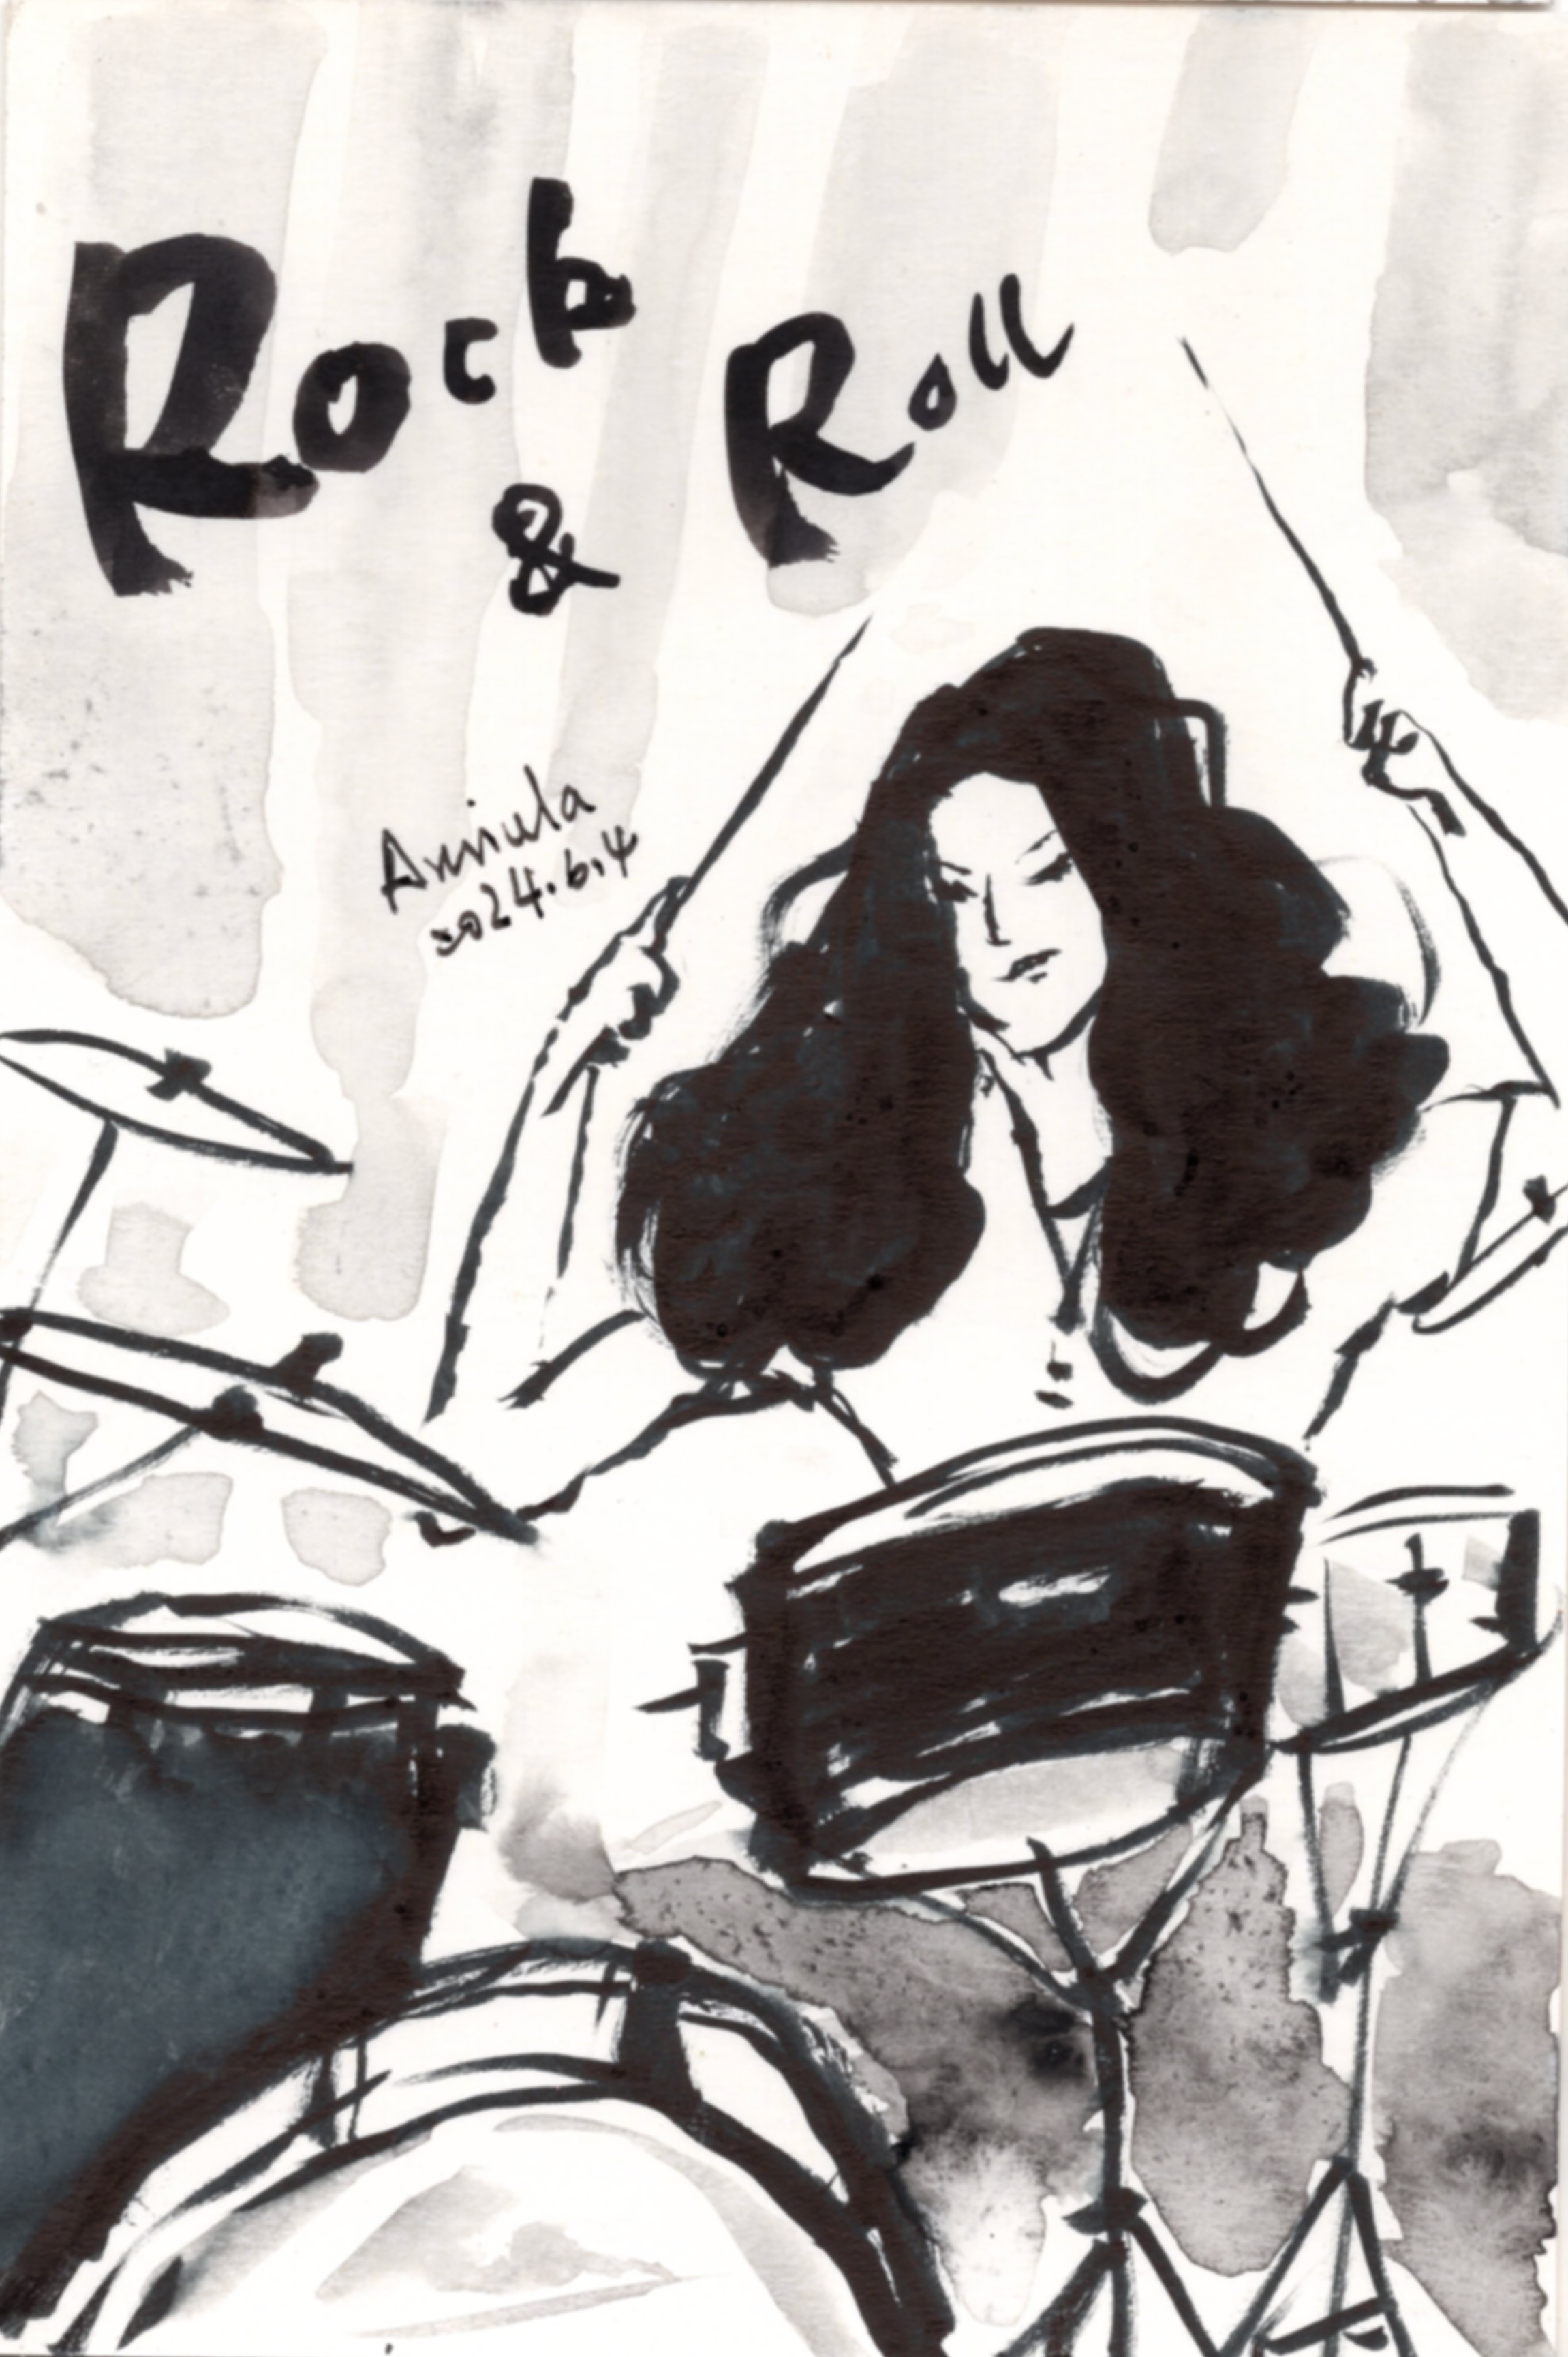 Rock
& Roll
Anniula
2024.6.4